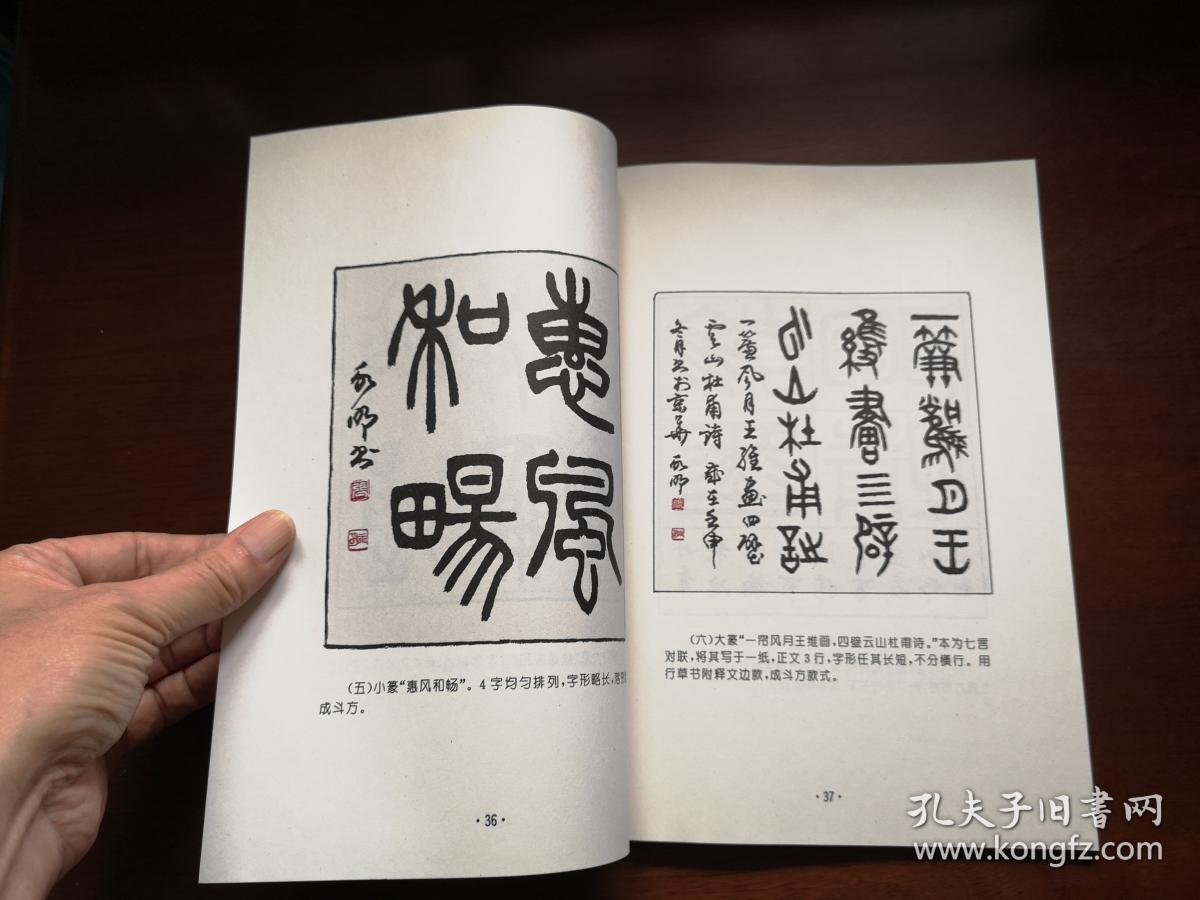 惠風
和暢
永明书
(五)小篆“惠风和畅”。4字均匀排列,字形略长,落
成斗方。
·36·
一簾風月王
維畫四壁
云山杜甫詩
一簾风月王維画四壁
云山杜甫诗 歲在壬申
冬月书於京華 永明
(六)大篆“一帘风月王维画,四壁云山杜甫诗。”本为七言
对联,将其写于一纸,正文3行,字形任其长短,不分横行。用
行草书附释文边款,成斗方款式。
·37·
孔夫子旧書网
www.kongfz.com